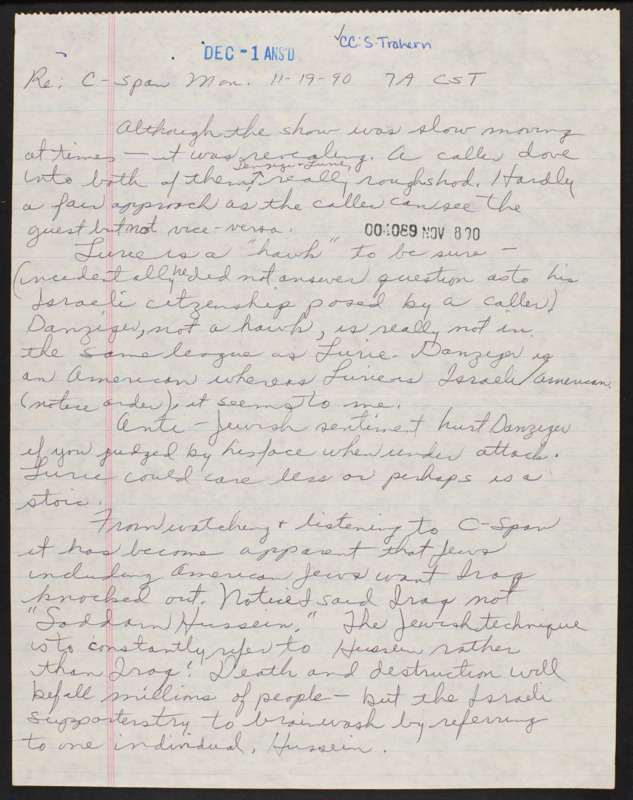 DEC - 1 ANS'D
✓CC: S. Trahern
Re: C-Span Mon. 11-19-90 7A CST
Although the show was slow moving
at times — it was revealing. A caller dove
Danziger & Lurie
into both of them, really roughshod. Hardly
a fair approach as the caller can see the
guest but not vice-versa.
004089 NOV 8 90
Lurie is a "hawk" to be sure —
(incidentally he did not answer question as to his
Israeli citizenship posed by a caller)
Danziger, not a hawk, is really not in
the same league as Lurie. Danziger is
an American whereas Lurie is Israeli/American
(notice order), it seems to me.
Anti-Jewish sentiment hurt Danziger
if you judged by his face when under attack.
Lurie could care less or perhaps is a
stoic.
From watching & listening to C-Span
it has become apparent that Jews
including American Jews want Iraq
knocked out. Notice I said Iraq not
"Saddam Hussein." The Jewish technique
is to constantly refer to Hussein rather
than Iraq! Death and destruction will
befall millions of people — but the Israeli
supporters try to brainwash by referring
to one individual, Hussein.